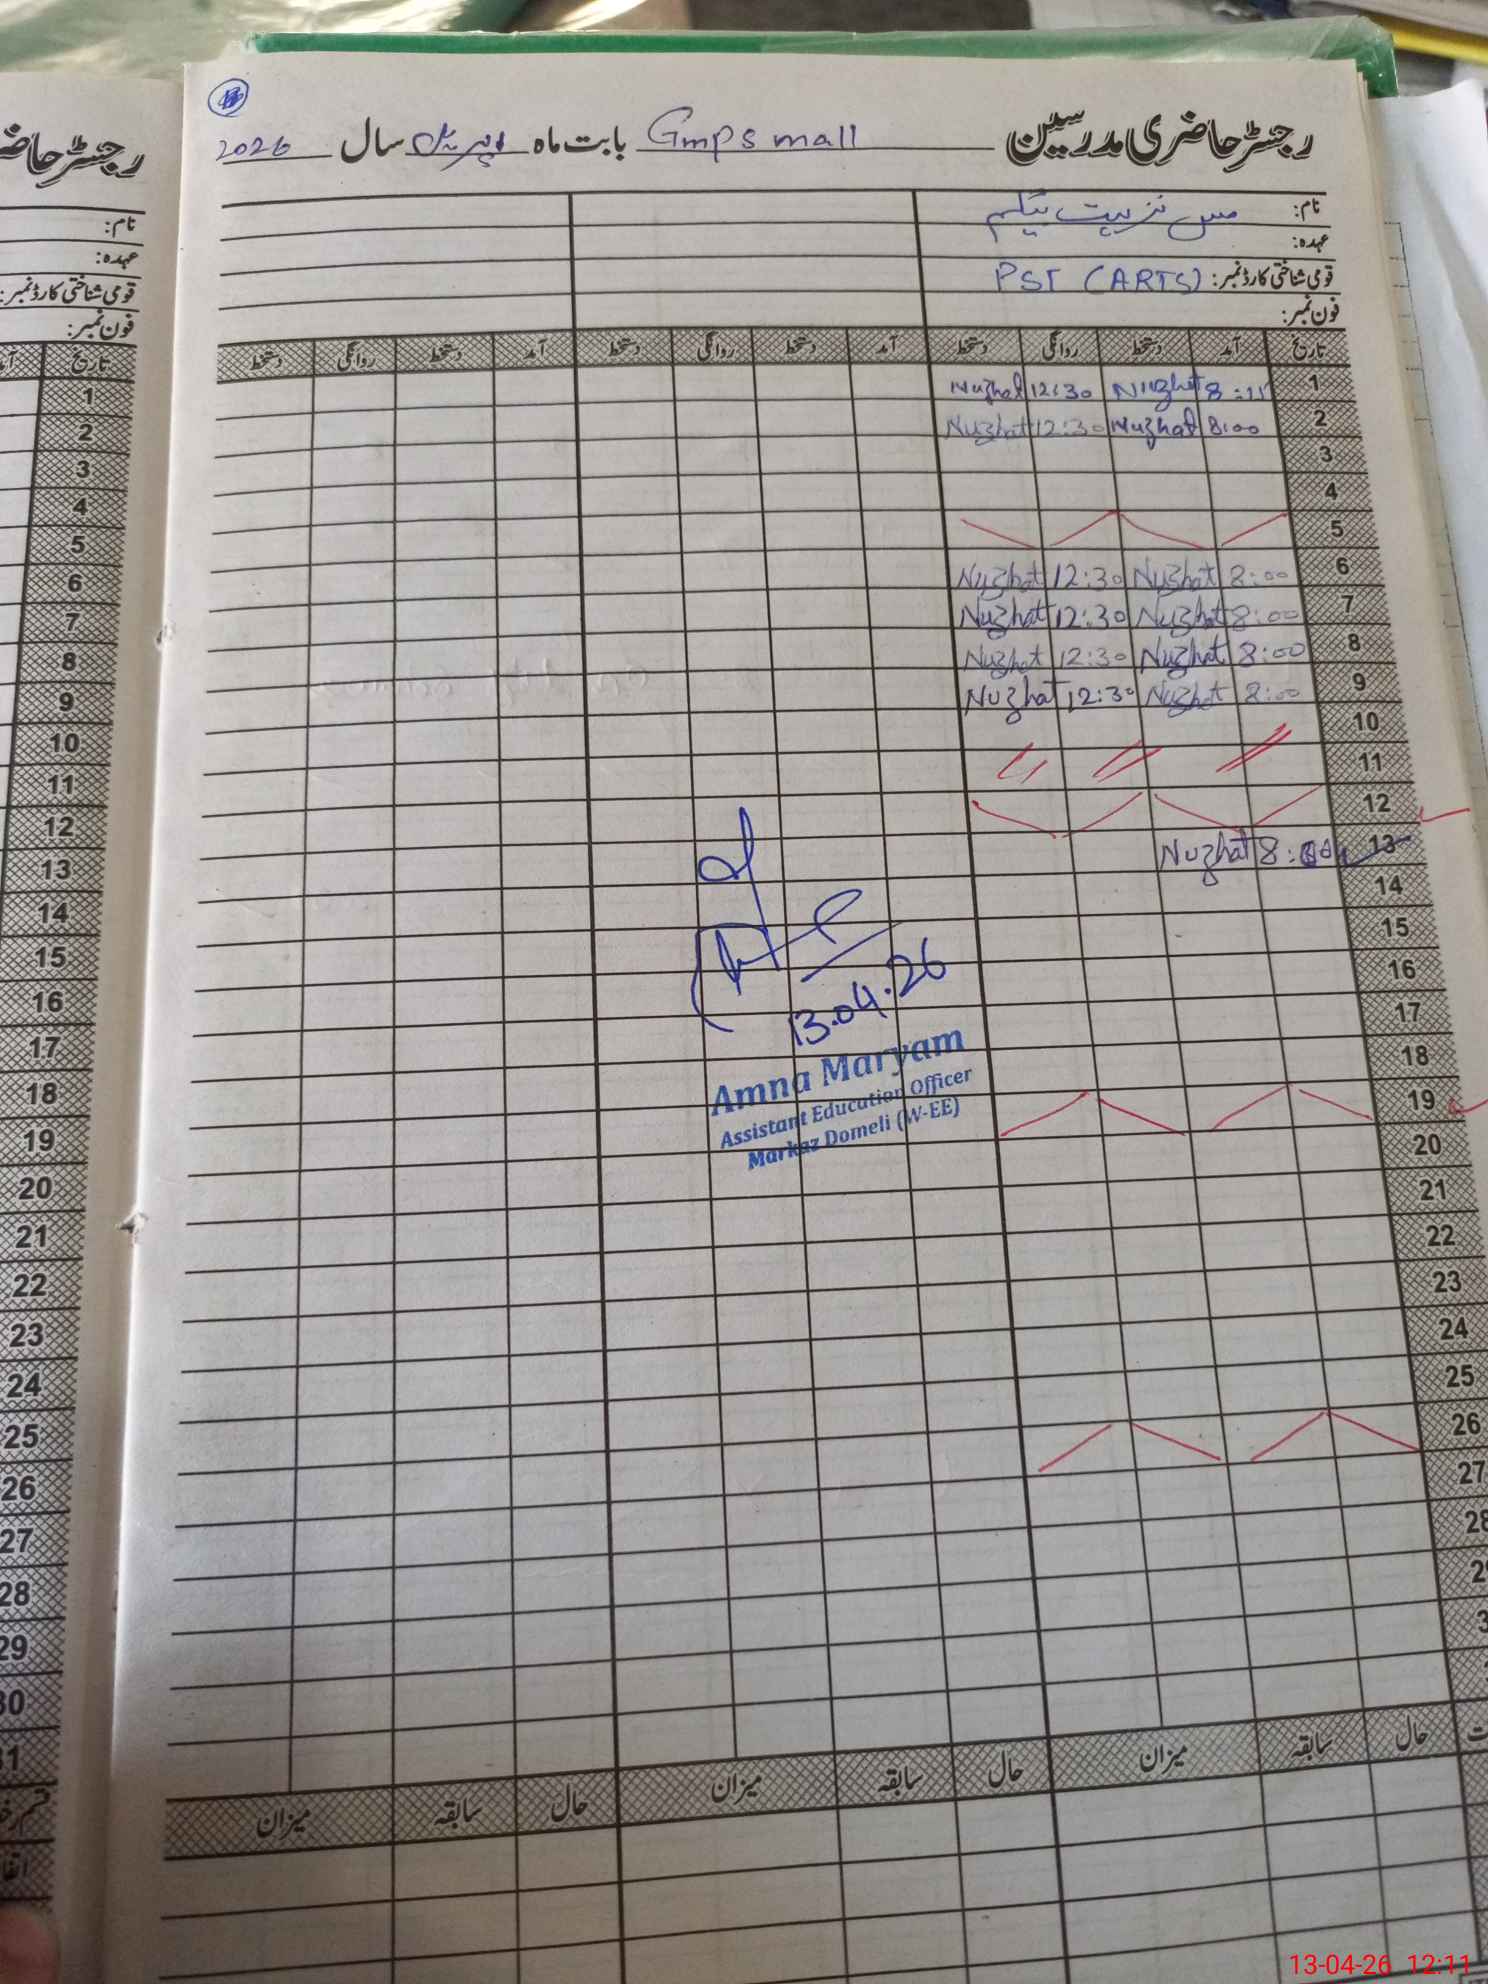 رجسٹر حاضری مدرسین Gmps mall بابت ماہ اپریل سال 2026
نام: مس نزہت بیگم
عہدہ:
قومی شناختی کارڈ نمبر: PST (ARTS)
فون نمبر:
تاریخ آمد دستخط روانگی دستخط آمد دستخط روانگی دستخط آمد دستخط روانگی دستخط
1 8:15 Nuzhat 12:30 Nuzhat
2 8:00 Nuzhat 12:30 Nuzhat
3
4
5
6 8:00 Nuzhat 12:30 Nuzhat
7 8:00 Nuzhat 12:30 Nuzhat
8 8:00 Nuzhat 12:30 Nuzhat
9 8:00 Nuzhat 12:30 Nuzhat
10
11
12
13 8:00 Nuzhat
14
15
16
17
18
19
20
21
22
23
24
25
26
27
28
13.04.26
Amna Maryam
Assistant Education Officer
Markaz Domeli (W-EE)
حال سابقہ میزان حال سابقہ میزان حال سابقہ میزان
نام:
عہدہ:
قومی شناختی کارڈ نمبر:
فون نمبر:
تاریخ
1
2
3
4
5
6
7
8
9
10
11
12
13
14
15
16
17
18
19
20
21
22
23
24
25
26
27
28
29
30
31
13-04-26 12:11